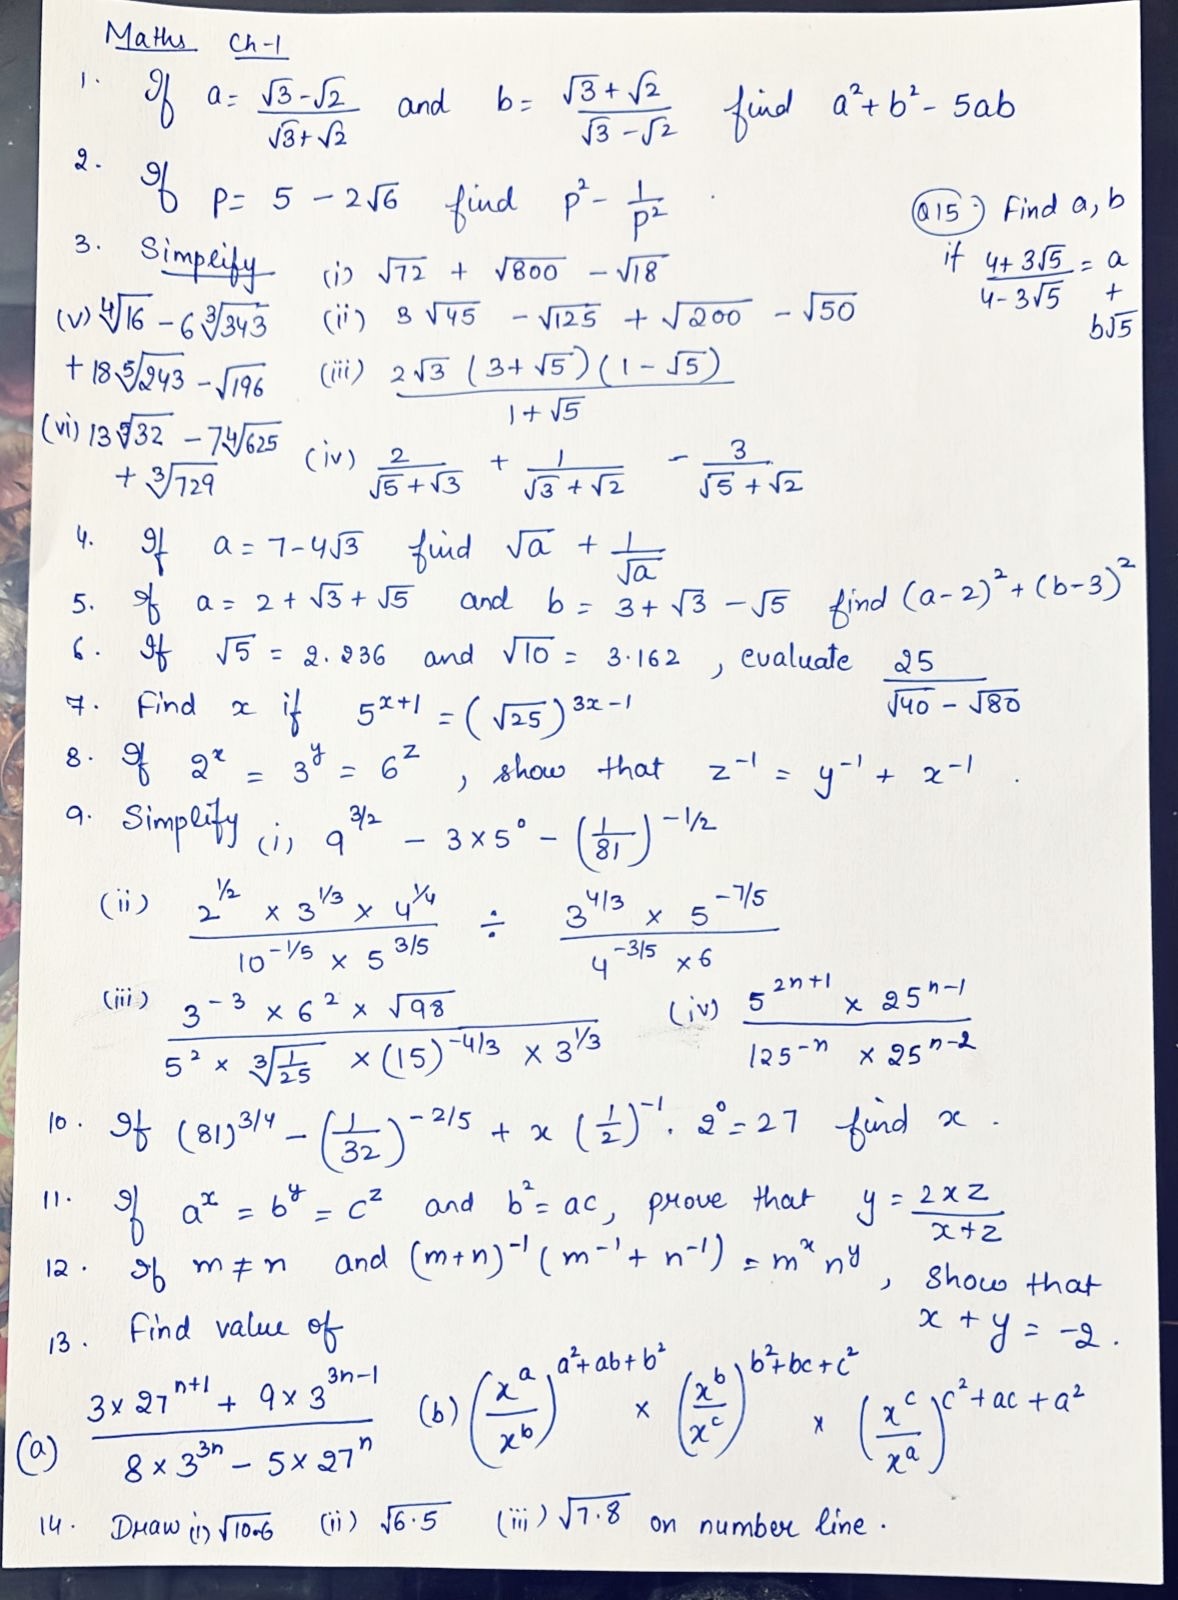 Maths Ch-1
1. If a = (√3-√2)/(√3+√2) and b = (√3+√2)/(√3-√2) find a²+b²-5ab
2. If p = 5 - 2√6 find p² - 1/p².
3. Simplify (i) √72 + √800 - √18
(ii) 3√45 - √125 + √200 - √50
(iii) 2√3 (3+√5)(1-√5)/(1+√5)
(iv) 2/(√5+√3) + 1/(√3+√2) - 3/(√5+√2)
(v) ⁴√16 - 6 ³√343
+ 18 ⁵√243 - √196
(vi) 13 ⁵√32 - 7 ⁴√625
+ ³√729
Q15) Find a, b
if (4+3√5)/(4-3√5) = a
+
b√5
4. If a = 7-4√3 find √a + 1/√a
5. If a = 2+√3+√5 and b = 3+√3-√5 find (a-2)²+(b-3)²
6. If √5 = 2.236 and √10 = 3.162, evaluate 25/(√40-√80)
7. Find x if 5^(x+1) = (√25)^(3x-1)
8. If 2^x = 3^y = 6^z, show that z⁻¹ = y⁻¹ + x⁻¹.
9. Simplify (i) 9^(3/2) - 3×5⁰ - (1/81)^(-1/2)
(ii) (2^(1/2) × 3^(1/3) × 4^(1/4))/(10^(-1/5) × 5^(3/5)) ÷ (3^(4/3) × 5^(-7/5))/(4^(-3/5) × 6)
(iii) (3^(-3) × 6² × √98)/(5² × ³√(1/25) × (15)^(-4/3) × 3^(1/3))
(iv) (5^(2n+1) × 25^(n-1))/(125^(-n) × 25^(n-2))
10. If (81)^(3/4) - (1/32)^(-2/5) + x(1/2)^(-1).2⁰ = 27 find x.
11. If a^x = b^y = c^z and b² = ac, prove that y = 2xz/(x+z)
12. If m ≠ n and (m+n)⁻¹(m⁻¹+n⁻¹) = m^x n^y, show that
x + y = -2.
13. Find value of
(a) (3×27^(n+1) + 9×3^(3n-1))/(8×3^(3n) - 5×27^n)
(b) (x^a/x^b)^(a²+ab+b²) × (x^b/x^c)^(b²+bc+c²) × (x^c/x^a)^(c²+ac+a²)
14. Draw (i) √10.6 (ii) √6.5 (iii) √7.8 on number line.